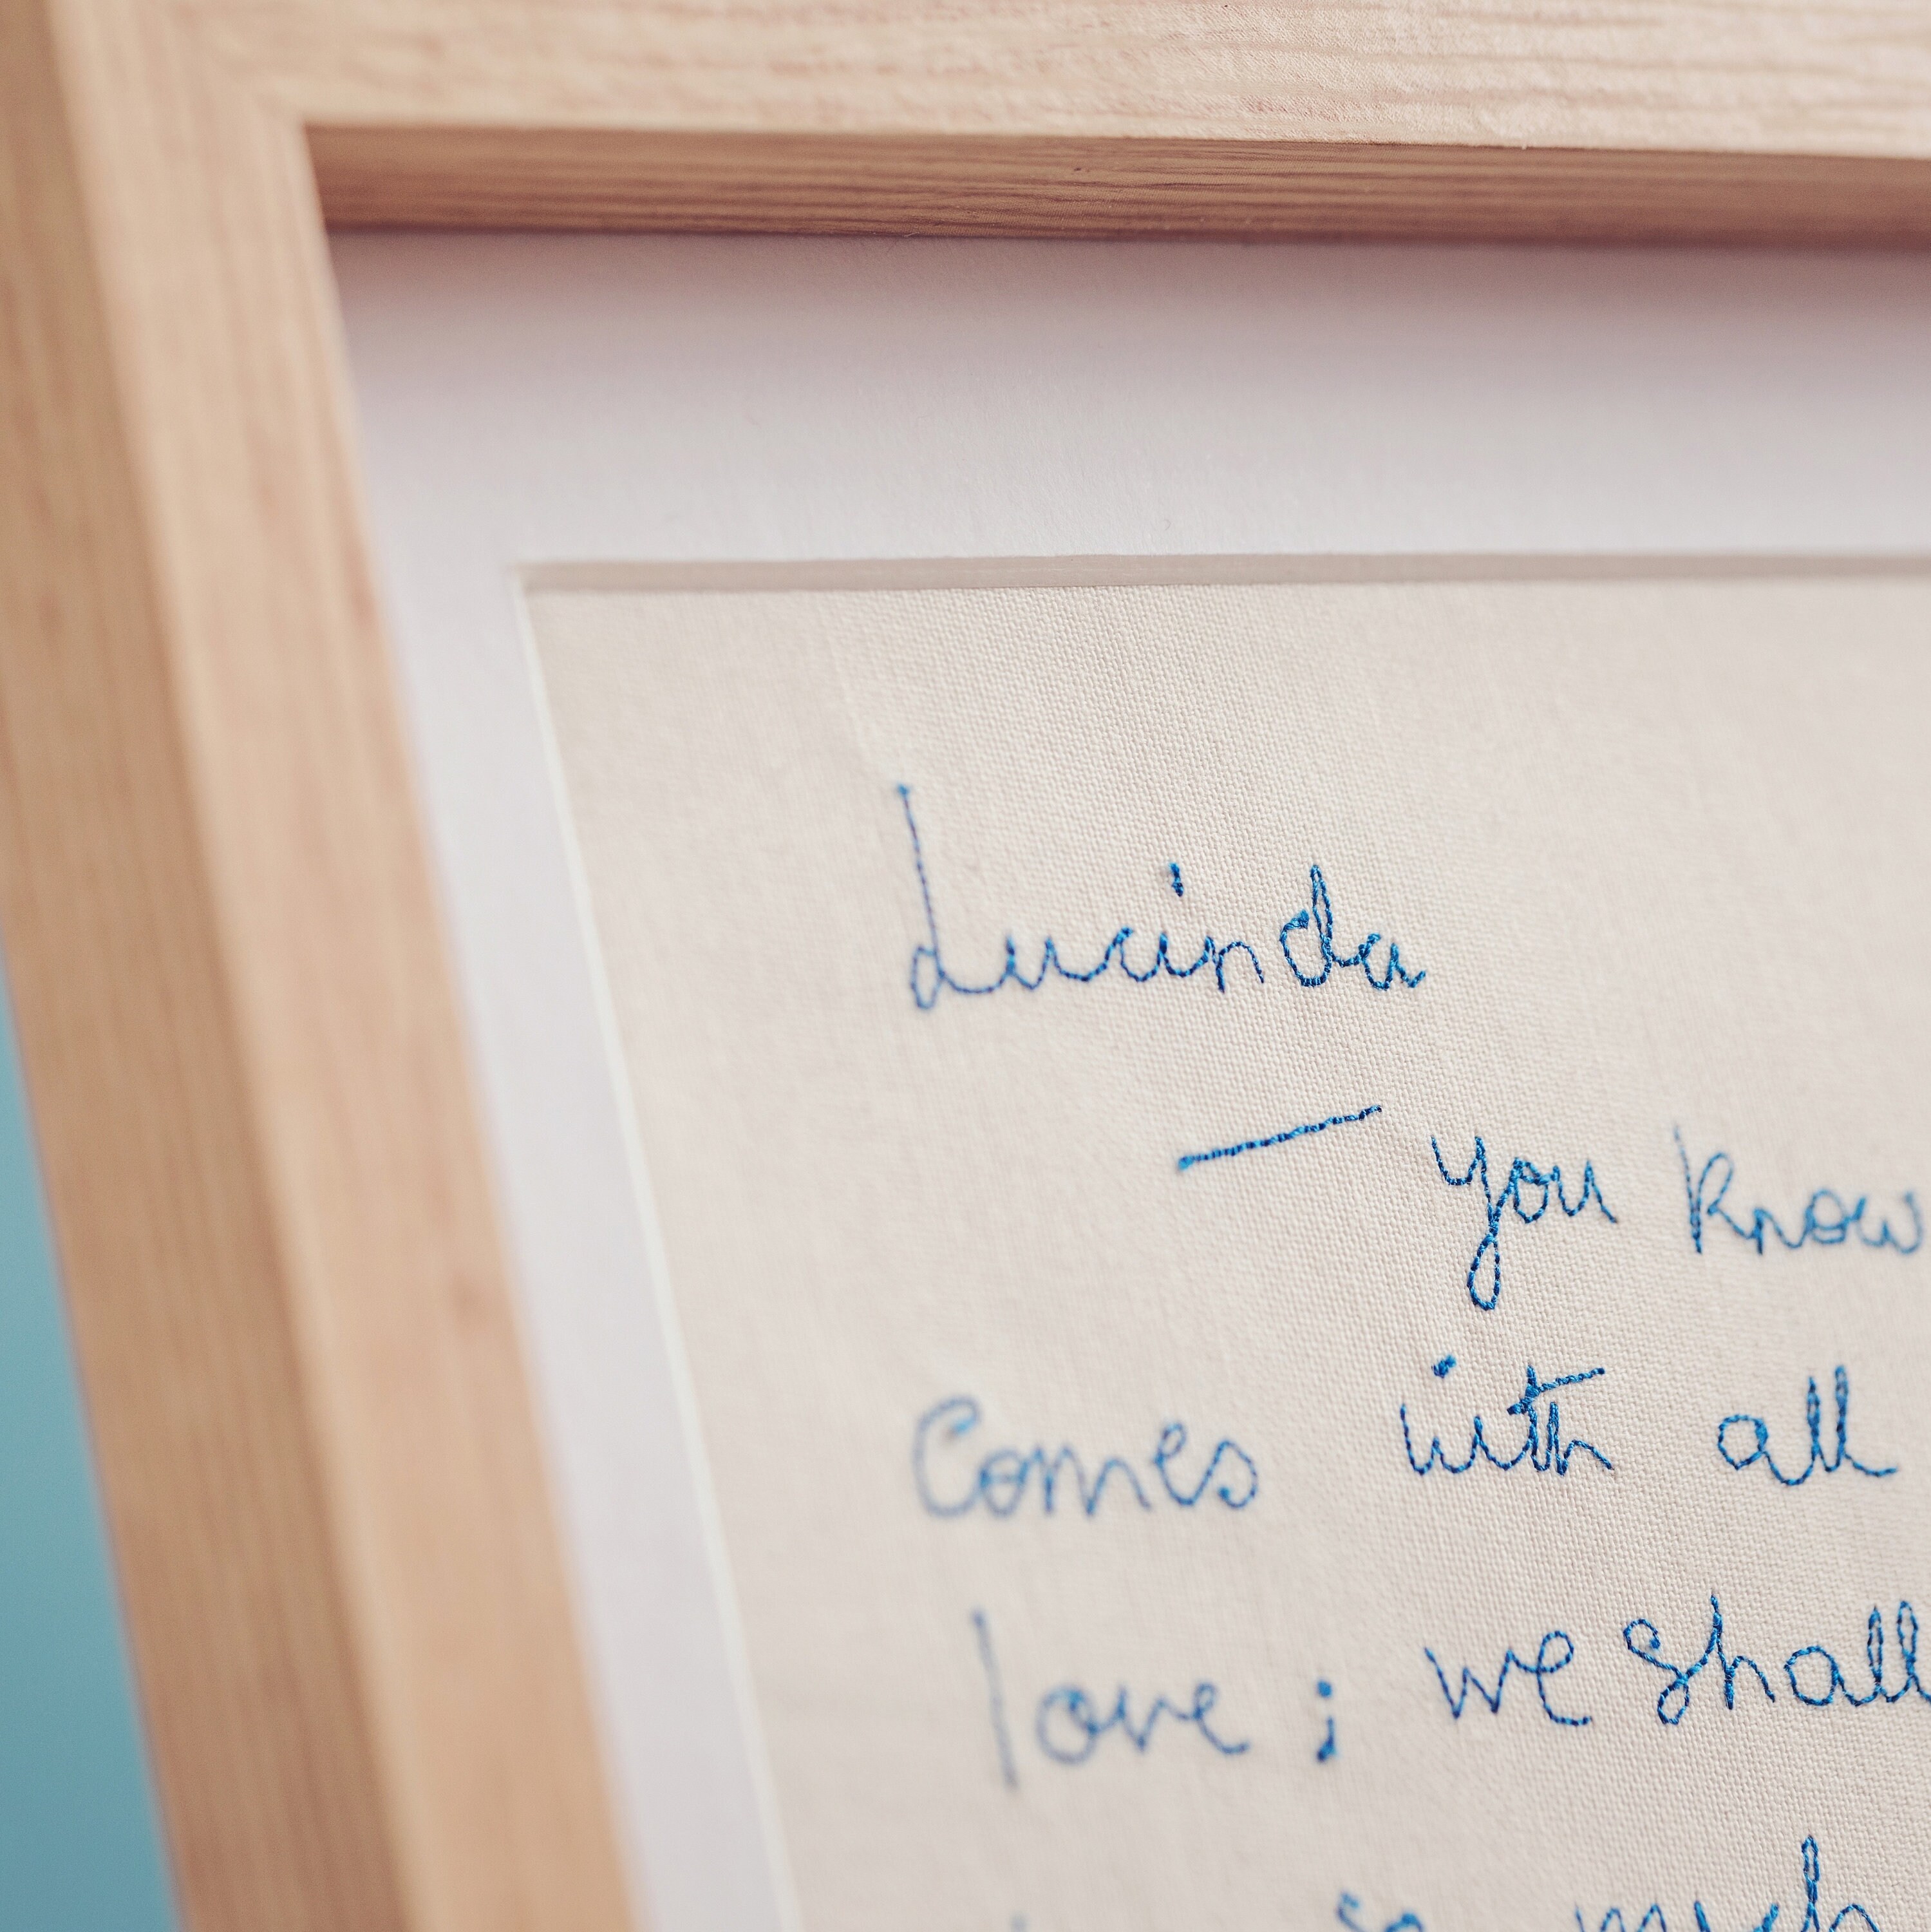 Lucinda
— you know
Comes with all
love ; we shall
so much